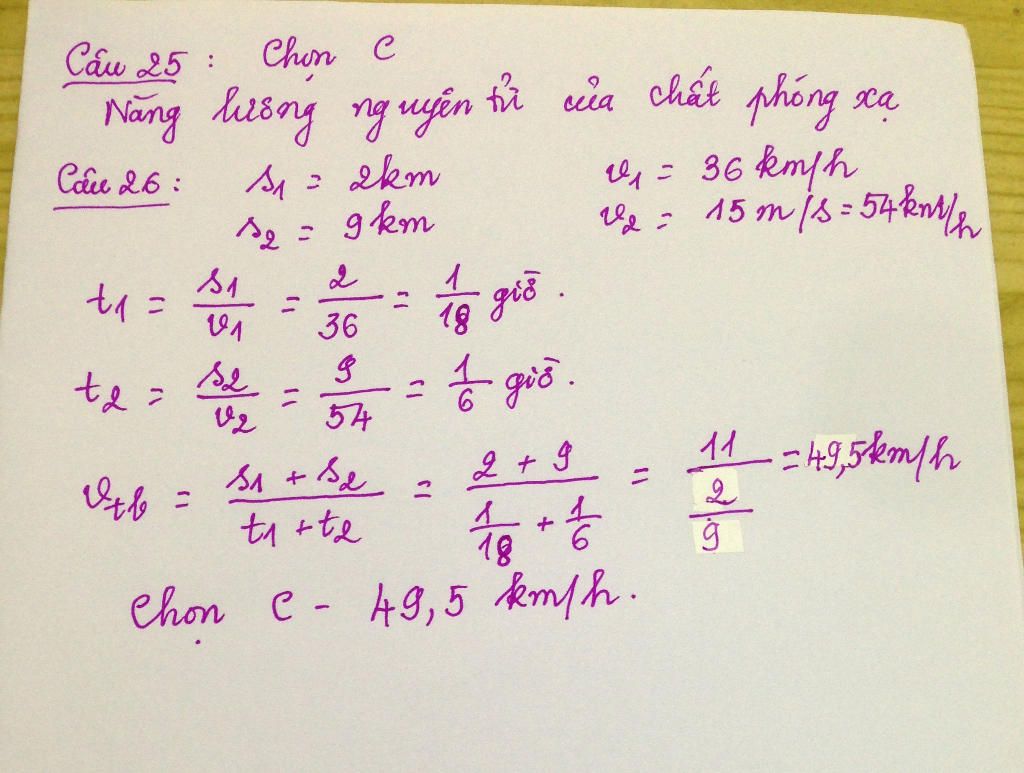 Câu 25 : Chọn C
Năng lượng nguyên tử của chất phóng xạ
Câu 26 : s1 = 2km v1 = 36 km/h
s2 = 9km v2 = 15 m/s = 54km/h
t1 = s1/v1 = 2/36 = 1/18 giờ .
t2 = s2/v2 = 9/54 = 1/6 giờ .
vtb = (s1 + s2)/(t1 + t2) = (2 + 9)/(1/18 + 1/6) = 11/(2/9) = 49,5km/h
Chọn C - 49,5 km/h.